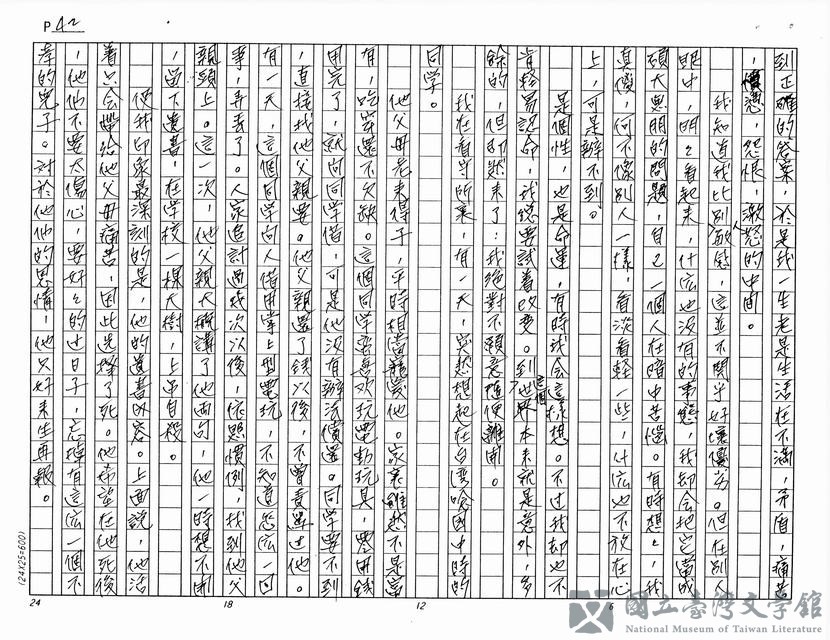 P 42
到正確的答案，於是我一生老是生活在不滿，矛盾，痛苦
，憤怒，怨恨，激怒的中間。
我知道我比別人敏感，這並不関乎好壞優劣。但在別人
眼中，明明看起来，什広也没有的事態，我却会把它當成
碩大思明的問題，自己一個人在暗中苦惱。有時想想，我
真傻，何不像別人一樣，看淡看輕一些，什広也不放在心
上，可是辦不到。
是個性，也是命運，有時我会這樣想。不过我却也不
肯輕易認命，我總要試着改变。到這個世界本来就是意外，多
餘的，但即然来了，我絕對不願意隨便離開。
我在看守所裏，有一天，突然想起在台灣唸国中時的
同学。
他父母老来得子，平時相當寵愛他。家裏雖然不是富
有，吃穿還不欠缺。這個同学喜欢玩電動玩具，零用錢
用完了，就向同学借，可是他没有辦法償還。同学要不到
，直接找他父親要。他父親還了錢以後，不曾責罪过他。
有一天，這個同学向人借用掌上型電玩，不知道怎広一回
事，弄丟了。人家追討过幾次以後，依照慣例，找到他父
親頭上。這一次，他父親大概講了他両句，他一時想不開
，留下遺書，在学校一棵大樹，上吊自殺。
使我印象最深刻的是，他的遺書内容。上面說，他活
着只会帶給他父母痛苦，因此选擇了死。他希望在他死後
，他們不要太傷心，要好好的过日子，忘掉有這広一個不
孝的兒子。対於他們的恩情，他只好来生再報。
24
18
12
6
(24X25=600)
國立臺灣文學館
National Museum of Taiwan Literature